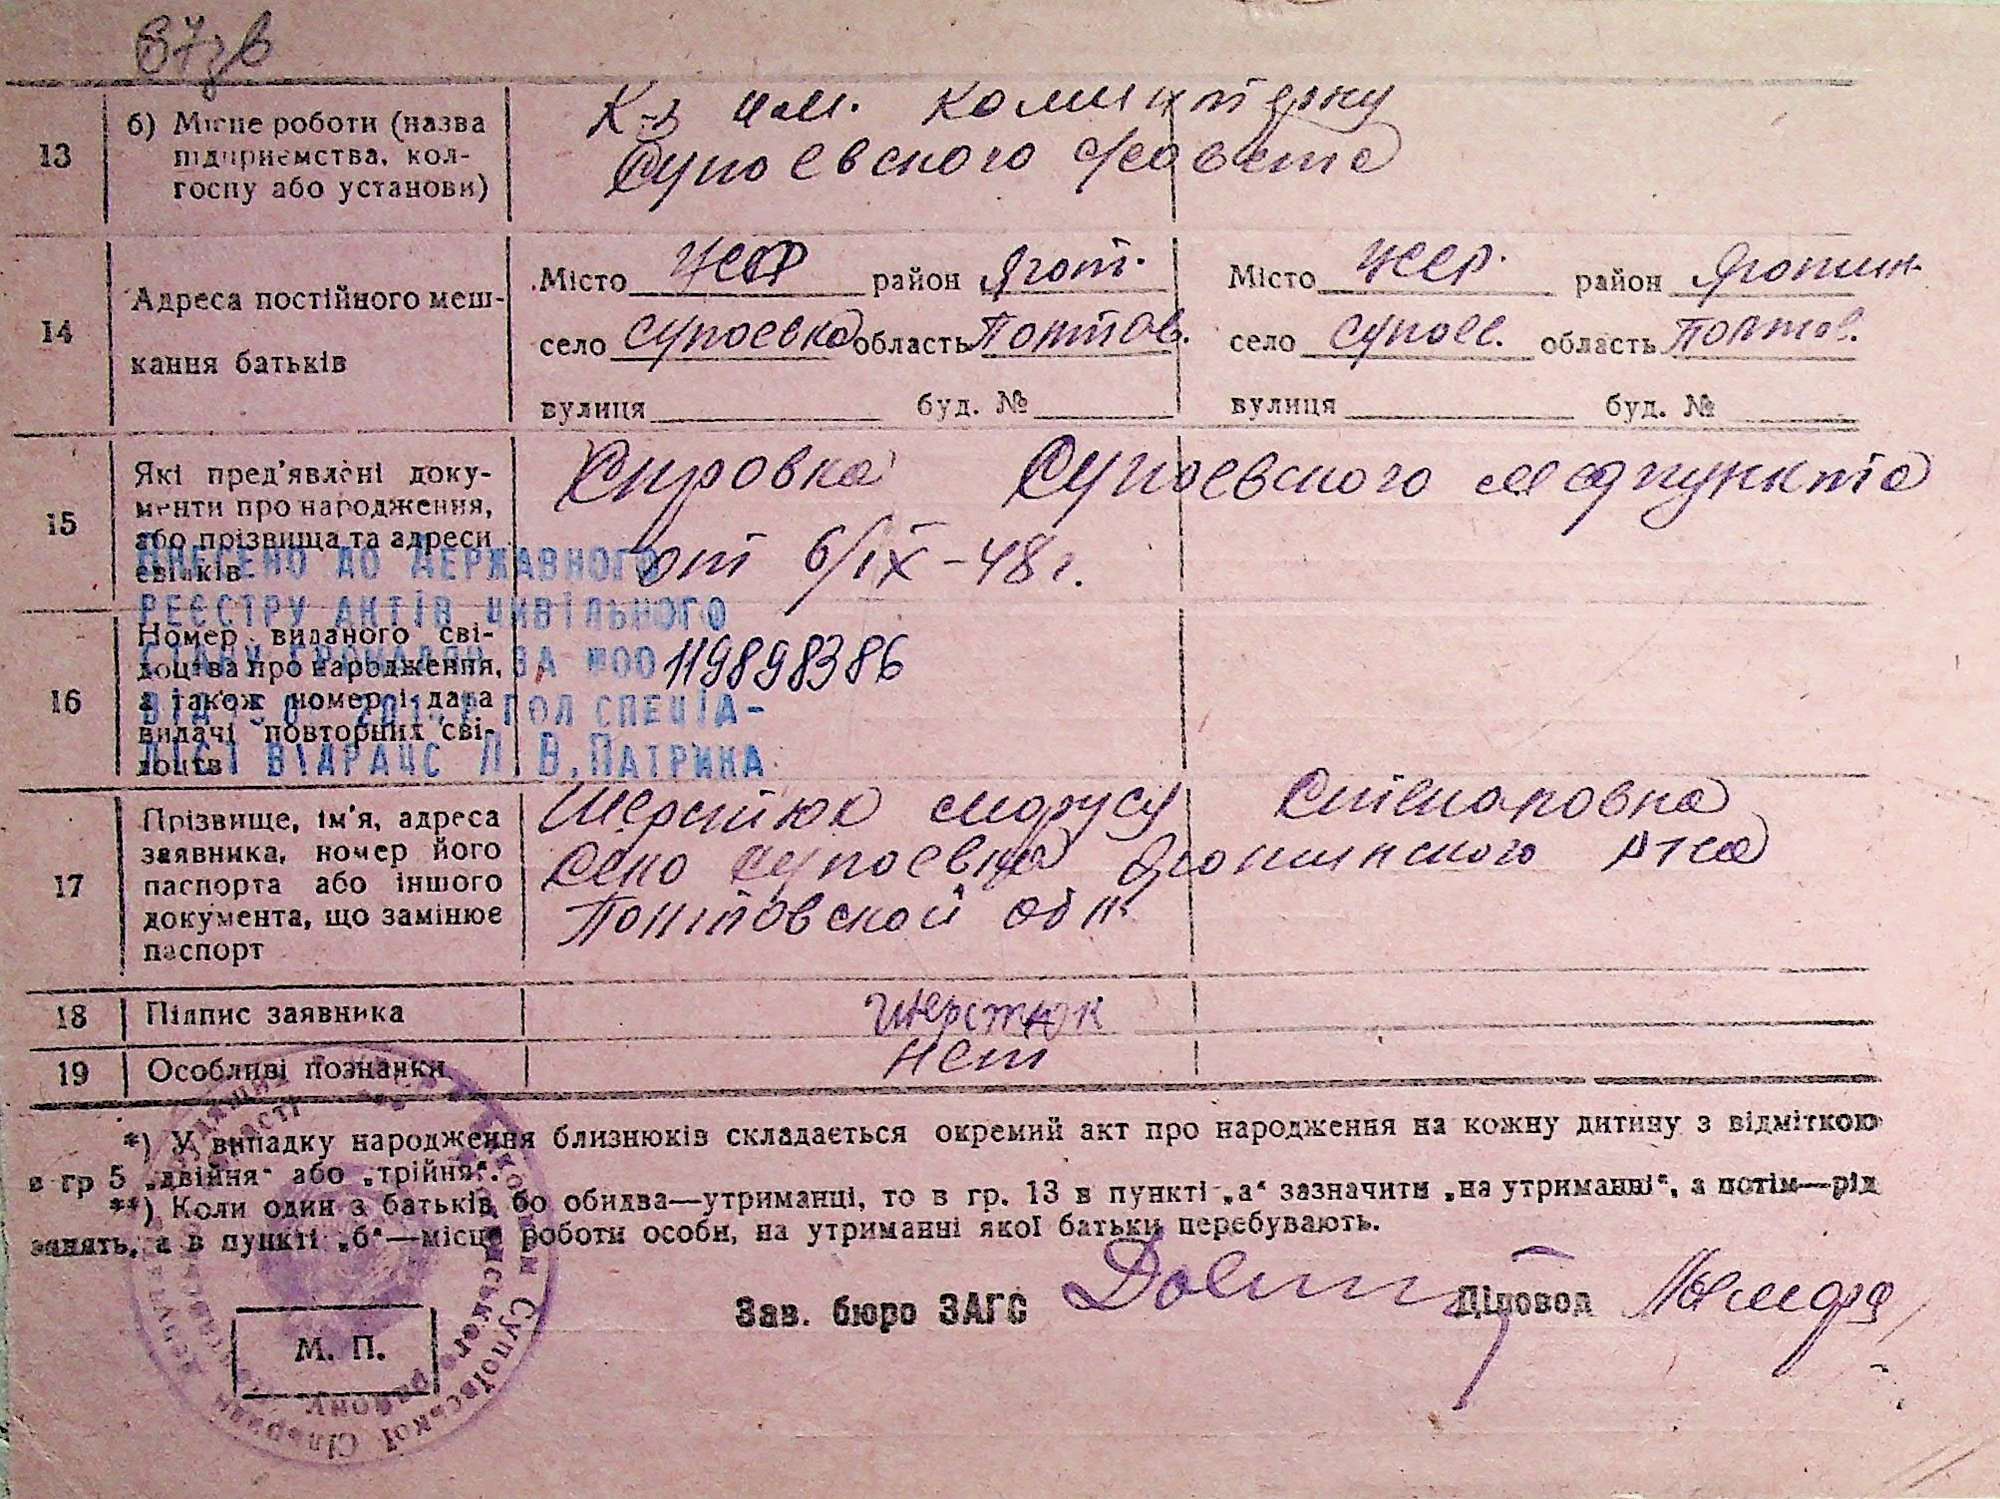 87зв
13
б) Місце роботи (назва підприємства, колгоспу або установи)
К-з им. Коминтерну
Супоевского с/совета
14
Адреса постійного мешкання батьків
Місто УССР район Ягот.
село Супоевка область Полтов.
вулиця буд. №
Місто УССР. район Яготин.
село Супоев. область Полтов.
вулиця буд. №
15
Які пред'явлені документи про народження, або прізвища та адреси свідків
Справка Супоевского медпункта
от 6/IX-48 г.
ВНЕСЕНО ДО ДЕРЖАВНОГО
РЕЄСТРУ АКТІВ ЦИВІЛЬНОГО
СТАНУ ГРОМАДЯН ЗА №00 119898386
ГОЛ СПЕЦІА-
ЛІСТ ВІДРАЦС Л В. ПАТРИКА
16
Номер виданого свідоцтва про народження, а також номер і дата видачі повторних свідоцтв
17
Прізвище, ім'я, адреса заявника, номер його паспорта або іншого документа, що замінює паспорт
Шерстюк Степановна
Село Супоевка Яготинского
Полтовской обл.
18
Підпис заявника
Шерстюк
19
Особливі познанки
нет
*) У випадку народження близнюків складається окремий акт про народження на кожну дитину з відміткою
в гр 5 „двійня“ або „трійня“.
**) Коли один з батьків, бо обидва—утриманці, то в гр. 13 в пункті „а“ зазначити „на утриманні“, а потім—рід
занять, а в пункті „б“—місце роботи особи, на утриманні якої батьки перебувають.
Зав. бюро ЗАГС
Діловод
М. П.
Супоївської Сільради
району